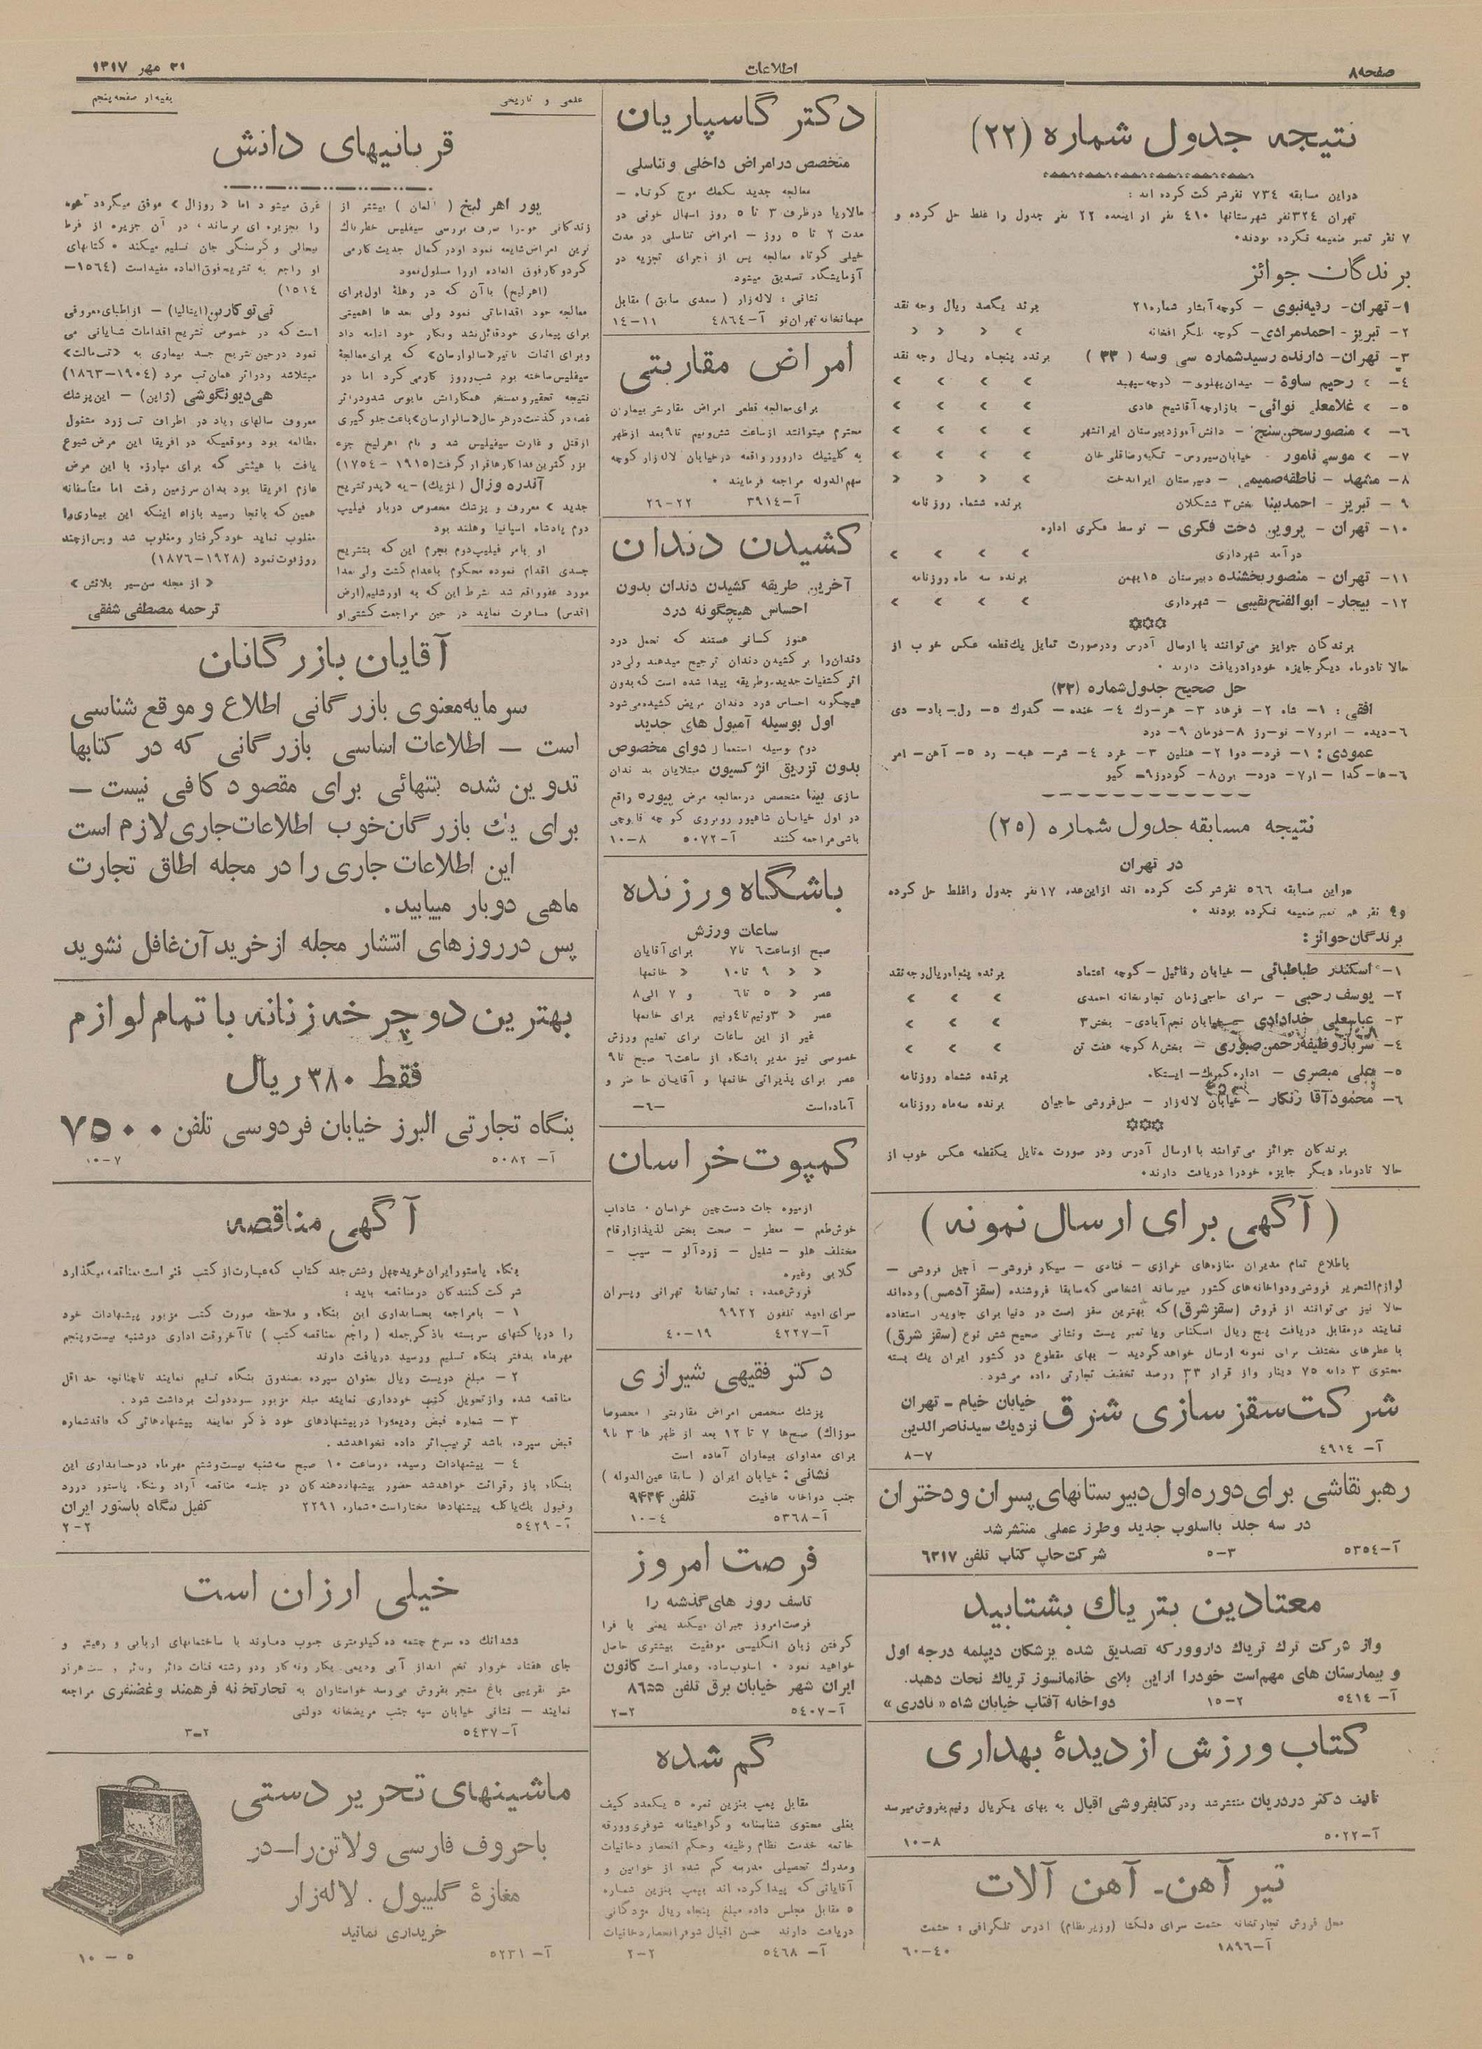 صفحه ۸
اطلاعات
۲۱ مهر ۱۳۱۷
نتیجه جدول شماره (۲۲)
دراین مسابقه ۷۳٤ نفر شرکت کرده اند :
تهران ۳۲٤ نفر شهرستانها ٤۱۰ نفر از اینعده ۲۲ نفر جدول را غلط حل کرده و
۷ نفر تمبر ضمیمه نکرده بودند.
برندگان جوائز
۱- تهران- رقیه نبوی - کوچه آبشار شماره ۲۱ برنده یکصد ریال وجه نقد
۲- تبریز- احمد مرادی- کوچه لنگر افخانه > > > >
۳- تهران- دارنده رسید شماره سی وسه (۳۳) برنده پنجاه ریال وجه نقد
٤- > رحیم ساوة - میدان پهلوی- کوچه سپهبد > > > >
٥- > غلامعلی نوائی- بازارچه آقا شیخ هادی > > > >
٦- > منصور سخن سنج - دانش آموز دبیرستان ایرانشهر > > > >
۷- > موسی نامور - خیابان سیروس- تکیه رضاقلی خان > > > >
۸- مشهد - ناطقه صمیمی - دبیرستان ایراندخت > > > >
۹- تبریز - احمد بینا بخش ۳ ششکلان برنده ششماه روزنامه
۱۰- تهران - پروین دخت فکری - توسط فکری اداره
درآمد شهرداری > > > >
۱۱- تهران - منصور بخشنده دبیرستان ۱٥ بهمن برنده سه ماه روزنامه
۱۲- بیجار- ابوالفتح نقیبی - شهرداری > > > >
برندگان جوایز می‌توانند با ارسال آدرس ودرصورت تمایل یک قطعه عکس خوب از
حالا تا دوماه دیگر جایزه خود را دریافت دارند.
حل صحیح جدول شماره (۲۲)
افقی : ۱- شاه ۲- فرهاد ۳- هر-رك ٤- خنده- گدوك ٥- رل- باد- دی
٦- دیده - امر ۷- نو- رز ۸- درمان ۹- درد
عمودی : ۱- فرد- دوا ۲- هنلین ۳- خرد ٤- شر- هبه- رد ٥- آهن- امر
٦- ها- گدا - ار ۷- دود- برن ۸- گودرز ۹- گیو
نتیجه مسابقه جدول شماره (۲٥)
در تهران
دراین مسابقه ٥٦٦ نفر شرکت کرده اند ازاین عده ۱۷ نفر جدول را غلط حل کرده
و ٤ نفر هم تمبر ضمیمه نکرده بودند.
برندگان جوائز:
۱- اسکندر طباطبائی - خیابان رفائیل - کوچه اعتماد برنده پنجاه ریال وجه نقد
۲- یوسف رحبی - سرای حاجی زمان تجارتخانه احمدی > > >
۳- عباسعلی خدادادی - نجم آبادی - بخش ۳ > > >
٤- سرباز وظیفه رحمن صبوری - بخش ۸ کوچه هفت تن > > >
٥- علی مبصری - اداره گمرك- ایستگاه برنده ششماه روزنامه
٦- محمود آقا زنگار - خیابان لاله زار - مبل فروشی حاجیان برنده سه ماه روزنامه
برندگان جوائز می‌توانند با ارسال آدرس ودر صورت تمایل یکقطعه عکس خوب از
حالا تا دوماه دیگر جایزه خود را دریافت دارند.
(آگهی برای ارسال نمونه)
باطلاع تمام مدیران مغازه‌های خرازی - قنادی - سیگار فروشی - آجیل فروشی -
لوازم التحریر فروشی و دواخانه های کشور میرساند اشخاصی که سابقا فروشنده (سقز آدمس) بوده‌اند
حالا نیز می‌توانند از فروش (سقز شرق) که بهترین سقز است در دنیا برای جاویدن استفاده
نمایند درمقابل دریافت پنج ریال اسکناس ویا تمبر پست ونشانی صحیح شش نوع (سقز شرق)
با عطرهای مختلف برای نمونه ارسال خواهد گردید - بهای مقطوع در کشور ایران یك بسته
محتوی ۳ دانه ۷٥ دینار واز قرار ۳۳ درصد تخفیف تجارتی داده می‌شود.
شرکت سقز سازی شرق خیابان خیام - تهران
نزدیك سید ناصرالدین
آ- ٤۹۱٤ ۷-۸
رهبر نقاشی برای دوره اول دبیرستانهای پسران و دختران
در سه جلد باسلوب جدید وطرز عملی منتشر شد
آ-٥۳٥٤ ۳-٥ شرکت چاپ کتاب تلفن ٦۳۱۷
معتادین بتریاك بشتابید
واز شرکت ترك تریاك داروورکه تصدیق شده پزشکان دیپلمه درجه اول
و بیمارستان های مهم است خود را ازاین بلای خانمانسوز تریاك نجات دهید.
آ- ٥٤۱٤ ۲-۱٥ دواخانه آفتاب خیابان شاه «نادری»
کتاب ورزش از دیدهٔ بهداری
تالیف دکتر دردریان منتشر شد ودر کتابفروشی اقبال به بهای یکریال ونیم بفروش میرسد
آ-٥۰۲۲ ۸-۱۰
تیر آهن- آهن آلات
محل فروش تجارتخانه حشمت سرای دلگشا (وزیر نظام) آدرس تلگرافی : حشمت
آ-۱۸۹٦ ٤۰-٦۰
دکتر گاسپاریان
متخصص در امراض داخلی و تناسلی
معالجه جدید بکمك موج کوتاه -
مالاریا درظرف ۳ تا ٥ روز اسهال خونی در
مدت ۲ تا ٥ روز - امراض تناسلی در مدت
خیلی کوتاه معالجه پس از اجرای تجزیه در
آزمایشگاه تصدیق میشود.
نشانی : لاله زار (سعدی سابق) مقابل
مهمانخانه تهران نو آ-٤۸٦٤ ۱۱-۱٤
امراض مقاربتی
برای معالجه قطعی امراض مقاربتی بیماران
محترم میتوانند از ساعت شش ونیم تا ۹ بعد از ظهر
به کلینیك داروور واقعه در خیابان لاله زار کوچه
سهم الدوله مراجعه فرمایند.
آ-۳۹۱٤ ۲۲-۲٦
کشیدن دندان
آخرین طریقه کشیدن دندان بدون
احساس هیچگونه درد
هنوز کسانی هستند که تحمل درد
دندان را بر کشیدن دندان ترجیح میدهند ولی در
اثر کشفیات جدید- وطریقه پیدا شده است که بدون
هیچگونه احساس درد دندان مریض کشیده می‌شود
اول بوسیله آمپول های جدید
دوم بوسیله استعمال دوای مخصوص
بدون تزریق انژکسیون مبتلایان به دندان
سازی بینا متخصص در معالجه مرض پیوره واقع
در اول خیابان شاهپور روبروی کوچه قاپوچی
باشی مراجعه کنند آ-٥۰۷۲ ۸-۱۰
باشگاه ورزنده
ساعات ورزش
صبح ازساعت ٦ تا ۷ برای آقایان
« « ۹ تا ۱۰ « خانمها
عصر « ٥ تا ٦ و ۷ الی ۸
عصر « ۳ ونیم تا ٤ ونیم برای خانمها
غیر از این ساعات برای تعلیم ورزش
خصوصی نیز مدیر باشگاه از ساعت ٦ صبح تا ۹
عصر برای پذیرائی خانمها و آقایان حاضر و
آماده است -٦-
کمپوت خراسان
ازمیوه جات دست چین خراسان - شاداب
خوش طعم - معطر - صحت بخش لذیذ از ارقام
مختلف هلو - شلیل - زردآلو - سیب -
گلابی وغیره
فروش عمده : تجارتخانهٔ تهرانی وپسران
سرای امید تلفون ۹۹۲۲
آ-٤۲۲۷ ۱۹-٤۰
دکتر فقیهی شیرازی
پزشك متخصص امراض مقاربتی (مخصوصا
سوزاك) صبح‌ها ۷ تا ۱۲ بعد از ظهرها ۳ تا ۹
برای مداوای بیماران آماده است
نشانی : خیابان ایران (سابقا عین الدوله)
جنب دواخانه عافیت تلفن ۹٤۳٤
آ-٥۳٦۸ ٤-۱۰
فرصت امروز
تاسف روز های گذشته را
فرصت امروز جبران میکند یعنی با فرا
گرفتن زبان انگلیسی موفقیت بیشتری حاصل
خواهید نمود. اسلوب ساده وعملی است کانون
ایران شهر خیابان برق تلفن ۸٦٥٥
آ-٥٤۰۷ ۲-۲
گم شده
مقابل پمپ بنزین نمره ٥ یکعدد کیف
بغلی محتوی شناسنامه و گواهینامه شوفری وورقه
خاتمه خدمت نظام وظیفه وحکم انحصار دخانیات
ومدرك تحصیلی مدرسه گم شده از خوانین و
آقایانی که پیدا کرده اند بپمپ بنزین شماره
٥ مقابل مجلس داده مبلغ پنجاه ریال مژدگانی
دریافت دارند حسن اقبال شوفر انحصار دخانیات
آ- ٥٤٦۸ ۲-۲
علمی و تاریخی
بقیه از صفحه پنجم
قربانیهای دانش
پور اهرلیخ (آلمان) بیشتر از
زندگانی خود را صرف بررسی سیفلیس خطرناك
ترین امراض شایعه نمود اودر کمال جدیت کار می
کرد و کار فوق العاده اورا مسلول نمود
(اهرلیخ) با آن که در وهلهٔ اول برای
معالجه خود اقداماتی نمود ولی بعد ها اهمیتی
برای بیماری خود قائل نشد وبکار خود ادامه داد
وبرای اثبات تاثیر «سالوارسان» که برای معالجهٔ
سیفلیس ساخته بود شب وروز کار می کرد اما در
نتیجه تحقیر وتمسخر همکارانش مایوس شد ودر اثر
غصه درگذشت در هر حال «سالوارسان» باعث جلوگیری
از قتل و غارت سیفلیس شد و نام اهرلیخ جزء
بزرگترین فداکارها قرار گرفت (۱۹۱٥-۱۷٥٤)
آندره وزال (بلژیك) - به «پدر تشریح
جدید» معروف و پزشك مخصوص دربار فیلیپ
دوم پادشاه اسپانیا وهلند بود
او بامر فیلیپ دوم بجرم این که بتشریح
جسدی اقدام نموده محکوم باعدام گشت ولی بعدا
مورد عفو واقع شد بشرط این که به اورشلیم (ارض
اقدس) مسافرت نماید در حین مراجعت کشتی او
غرق میشود اما «روزال» موفق میگردد خود
را بجزیره ای برساند، در آن جزیره از فرط
بیحالی و گرسنگی جان تسلیم میکند. کتابهای
او راجع به تشریح فوق العاده مفید است (۱٥٦٤-
۱٥۱٤)
تی تو کاربن (ایتالیا) - از اطبای معروفی
است که در خصوص تشریح اقدامات شایانی می
نمود درحین تشریح جسد بیماری به «تب مالت»
مبتلا شد ودر اثر همان تب مرد (۱۹۰٤-۱۸٦۳)
هی‌دیونگوشی (ژاپن) - این پزشك
معروف سالهای زیاد در اطراف تب زرد مشغول
مطالعه بود وموقعیکه در افریقا این مرض شیوع
یافت با هیئتی که برای مبارزه با این مرض
عازم افریقا بود بدان سرزمین رفت اما متأسفانه
همین که بآنجا رسید بازاء اینکه این بیماری را
مغلوب نماید خود گرفتار ومغلوب شد وپس از چند
روز فوت نمود (۱۹۲۸-۱۸۷٦)
«از مجله سن سیر بلاتش»
ترجمه مصطفی شفقی
آقایان بازرگانان
سرمایه معنوی بازرگانی اطلاع و موقع شناسی
است - اطلاعات اساسی بازرگانی که در کتابها
تدوین شده بتنهائی برای مقصود کافی نیست -
برای یك بازرگان خوب اطلاعات جاری لازم است
این اطلاعات جاری را در مجله اطاق تجارت
ماهی دوبار مییابید.
پس در روزهای انتشار مجله از خرید آن غافل نشوید
بهترین دوچرخه زنانه با تمام لوازم
فقط ۳۸۰ ریال
بنگاه تجارتی البرز خیابان فردوسی تلفن ۷٥۰۰
آ- ٥۰۸۲ ۷-۱۰
آگهی مناقصه
بنگاه پاستور ایران خرید چهل وشش جلد کتاب که عبارت از کتب فنی است بمناقصه میگذارد
شرکت کنندگان در مناقصه باید :
۱ - بامراجعه بحسابداری این بنگاه و ملاحظه صورت کتب مزبور پیشنهادات خود
را درپاکتهای سربسته باذکر جمله (راجع بمناقصه کتب) تا آخروقت اداری دوشنبه بیست وپنجم
مهرماه بدفتر بنگاه تسلیم ورسید دریافت دارند
۲ - مبلغ دویست ریال بعنوان سپرده بصندوق بنگاه تسلیم نمایند تا چنانچه حداقل
مناقصه شده وازتحویل کتب خودداری نمایند مبلغ مزبور بسود دولت برداشت شود.
۳ - شماره قبض ودیعه را درپیشنهادهای خود ذکر نمایند پیشنهادهائی که فاقد شماره
قبض سپرده باشد ترتیب اثر داده نخواهد شد.
٤ - پیشنهادات رسیده درساعت ۱۰ صبح سه شنبه بیست وششم مهرماه درحسابداری این
بنگاه باز وقرائت خواهد شد حضور پیشنهاد دهندگان در جلسه مناقصه آزاد وبنگاه پاستور دررد
وقبول یك یا کلیه پیشنهادها مختار است. شماره ۲۲۹۱ کفیل بنگاه پاستور ایران
آ- ٥٤۲۹ ۲-۲
خیلی ارزان است
ششدانك ده سرخ چشمه ده کیلومتری جنوب دماوند با ساختمانهای اربابی و رعیتی و
جای هفتاد خروار تخم انداز آبی ودیمی بکار ودو رشته قنات دائر
متر تقریبی باغ مشجر بفروش می‌رسد خواستاران به تجارتخانه فرهمند وغضنفری مراجعه
نمایند - نشانی خیابان سپه جنب مریضخانه دولتی
آ-٥٤۳۷ ۲-۳
ماشینهای تحریر دستی
با حروف فارسی ولاتن را- در
مغازهٔ گلیبول . لاله‌زار
خریداری نمائید
آ- ٥۲۳۱ ٥-۱۰